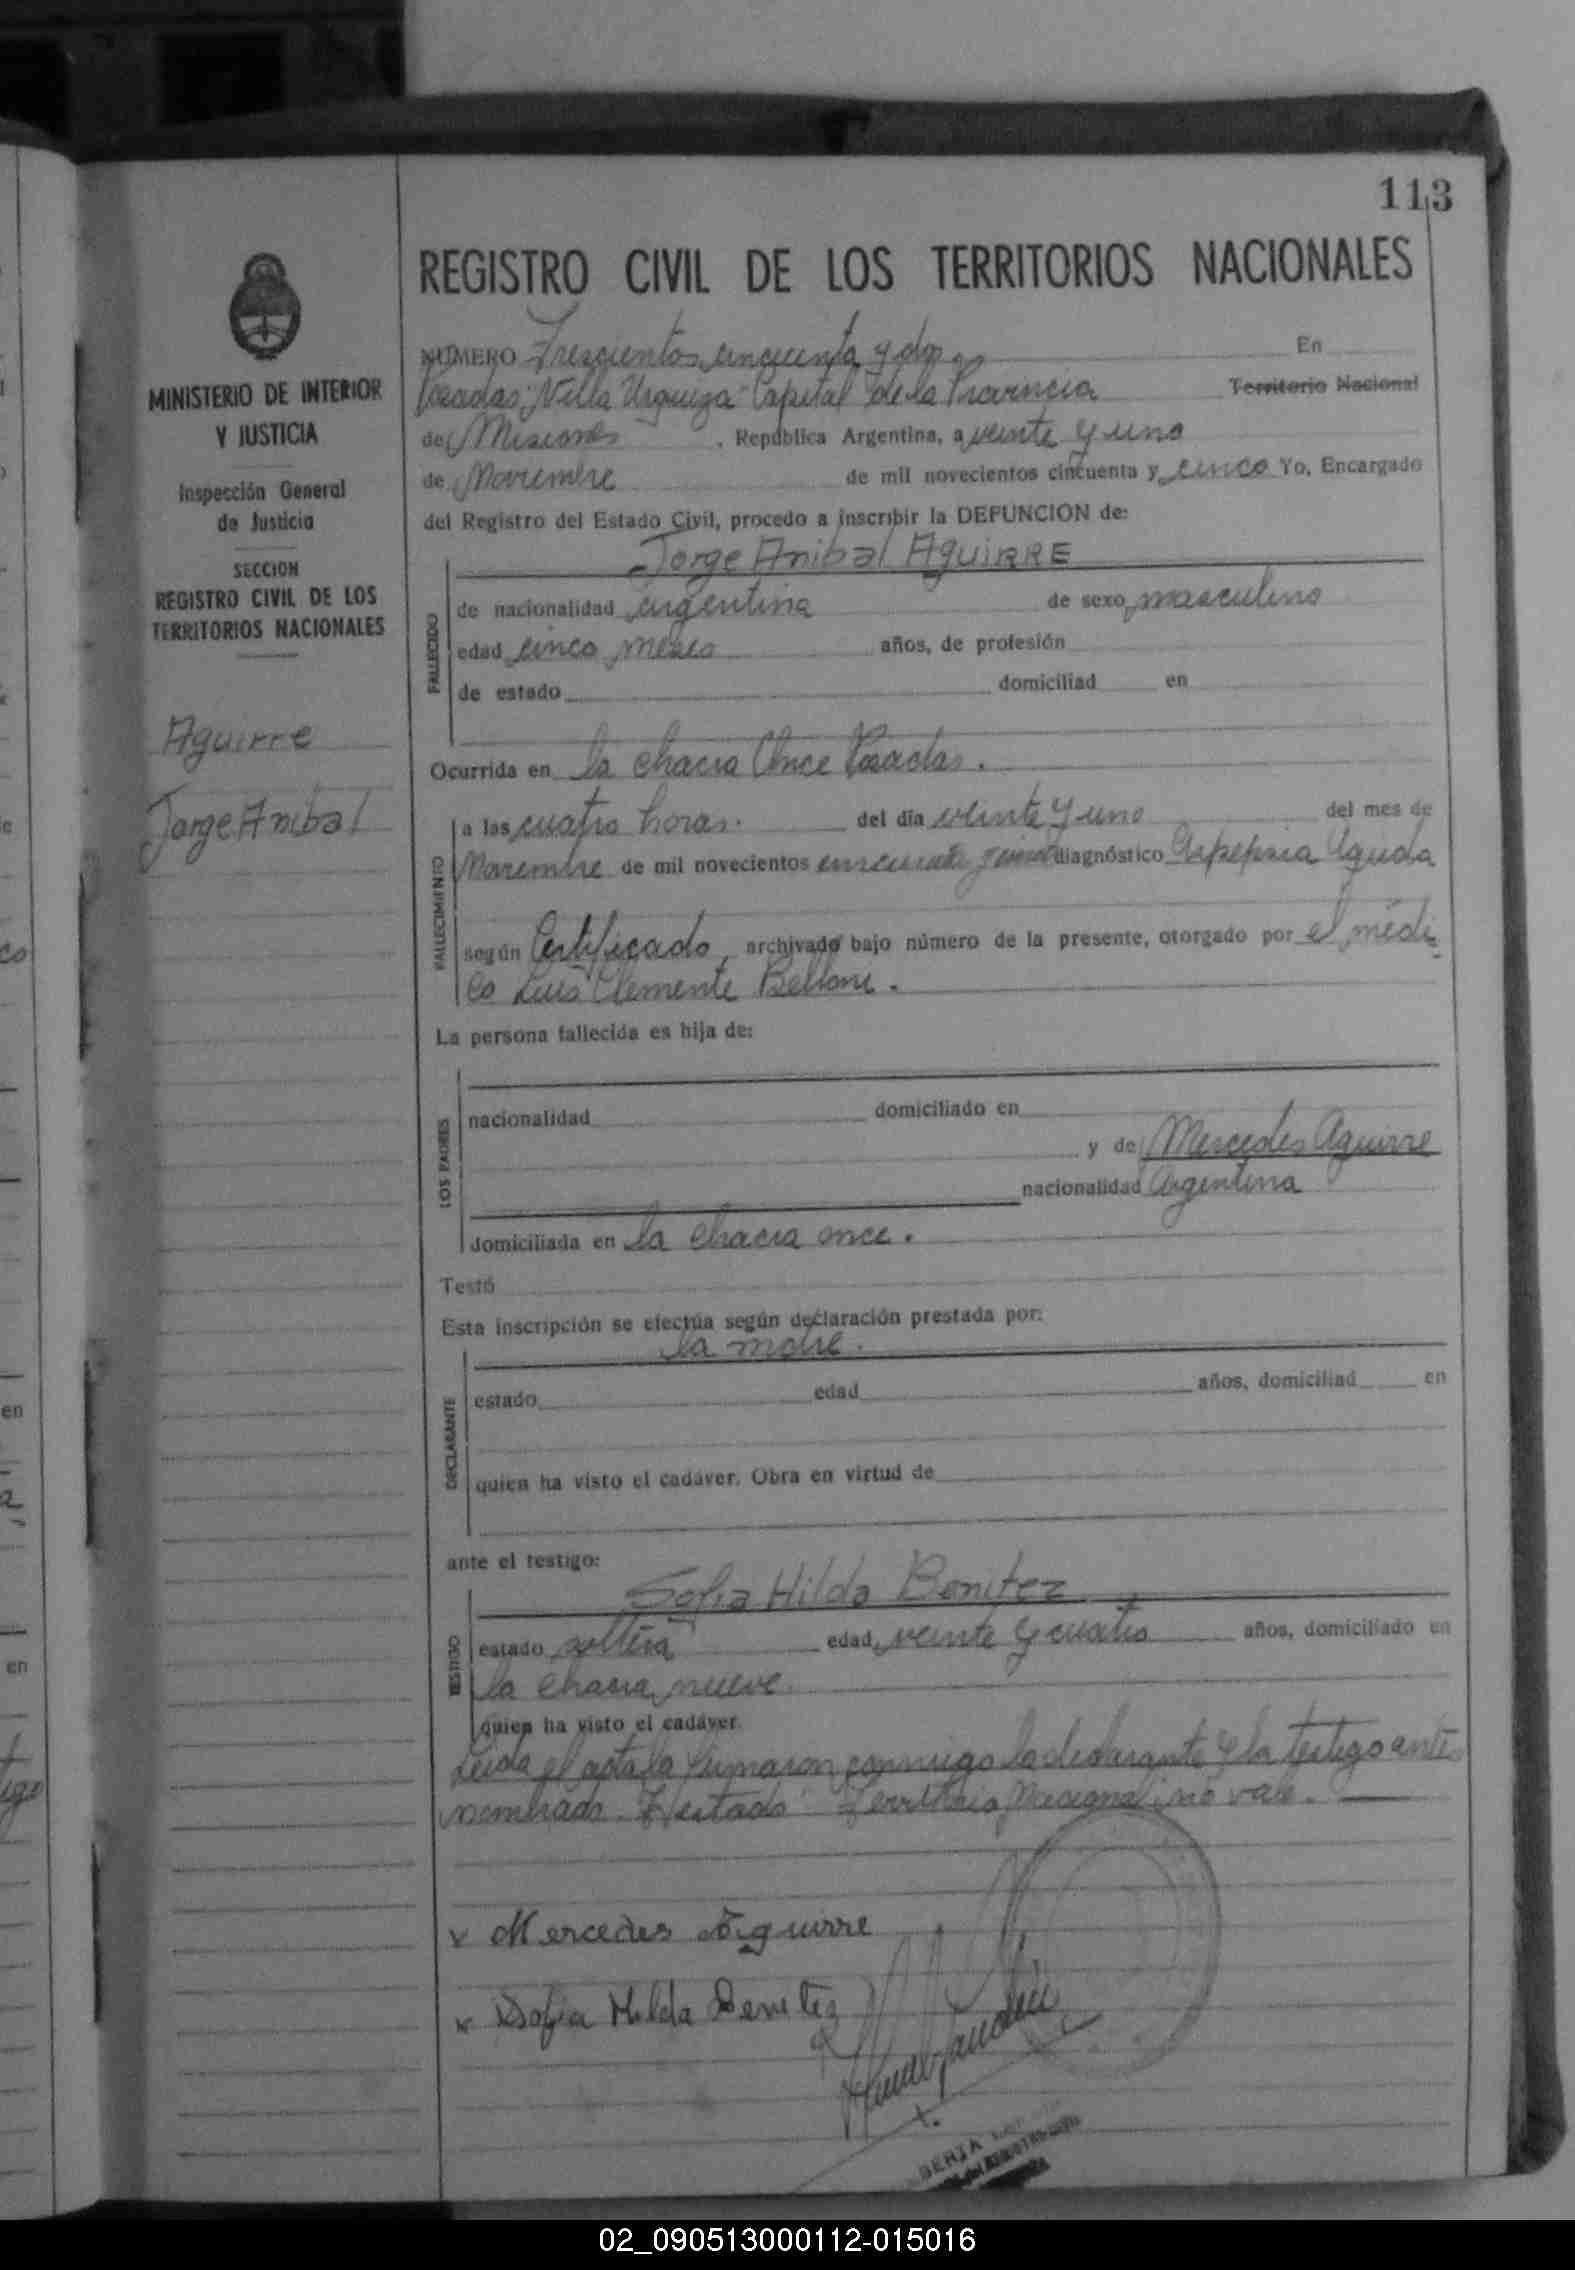 113
REGISTRO CIVIL DE LOS TERRITORIOS NACIONALES
MINISTERIO DE INTERIOR
Y JUSTICIA
Inspección General
de Justicia
SECCION
REGISTRO CIVIL DE LOS
TERRITORIOS NACIONALES
Aguirre
Jorge Anibal
NUMERO Trescientos cincuenta y dos En
Posadas "Villa Urquiza" Capital de la Provincia Territorio Nacional
de Misiones, República Argentina, a veinte y uno
de Noviembre de mil novecientos cincuenta y cinco Yo, Encargado
del Registro del Estado Civil, procedo a inscribir la DEFUNCION de:
Jorge Anibal AguiRRE
FALLECIDO
de nacionalidad argentina de sexo masculino
edad cinco meses años, de profesión
de estado domiciliad en
Ocurrida en la chacra Once Posadas.
FALLECIMIENTO
a las cuatro horas. del día veinte y uno del mes de
Noviembre de mil novecientos cincuenta y cinco diagnóstico Dispepsia Aguda
según Certificado, archivado bajo número de la presente, otorgado por el médi
co Luis Clemente Belloni.
La persona fallecida es hija de:
LOS PADRES
nacionalidad domiciliado en
y de Mercedes Aguirre
nacionalidad Argentina
domiciliada en la chacra once.
Testó
Esta inscripción se efectúa según declaración prestada por:
la madre.
DECLARANTE
estado edad años, domiciliad en
quien ha visto el cadáver. Obra en virtud de
ante el testigo:
Sofia Hilda Benitez
TESTIGO
estado soltera edad veinte y cuatro años, domiciliado en
la chacra nueve.
quien ha visto el cadáver.
Leida el acta la firmaron conmigo la declarante y la testigo antes
nombrado. Testado "Territorio Nacional": no vale.
Mercedes Aguirre
Sofia Hilda Benitez
02_090513000112-015016